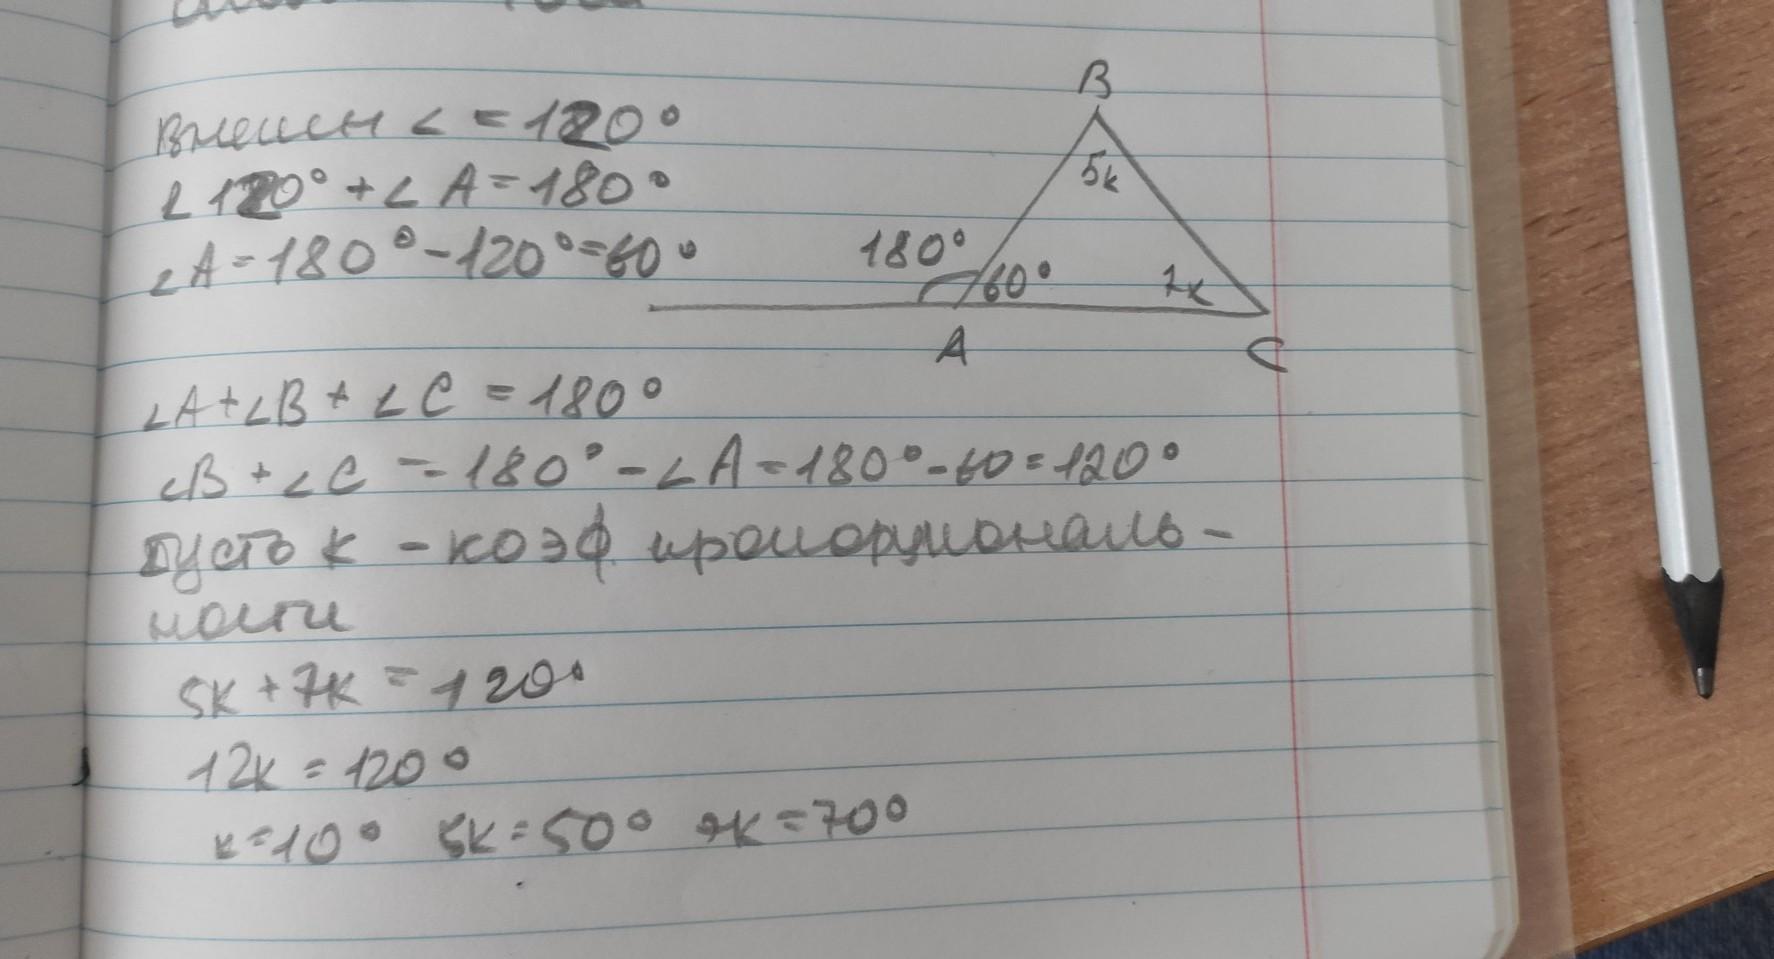 Внешн ∠ = 120°
∠120° + ∠A = 180°
∠A = 180° - 120° = 60°
B
5k
180°
60°
7k
A
C
∠A + ∠B + ∠C = 180°
∠B + ∠C = 180° - ∠A = 180° - 60 = 120°
Пусть k - коэф пропорциональ-
ности
5k + 7k = 120°
12k = 120°
k = 10° 5k = 50° 7k = 70°